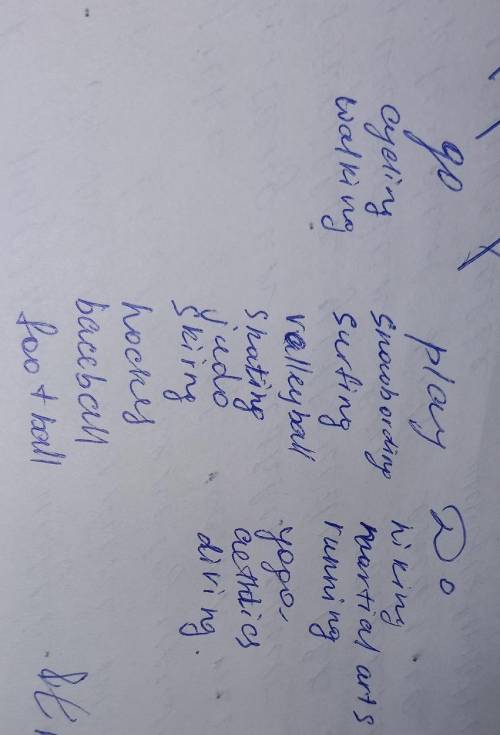 go
cycling
walking
play
snowbording
surfing
valleyball
skating
judo
skiing
hockey
baceball
football
Do
hiking
martial arts
running
yoga,
aethtics
diving